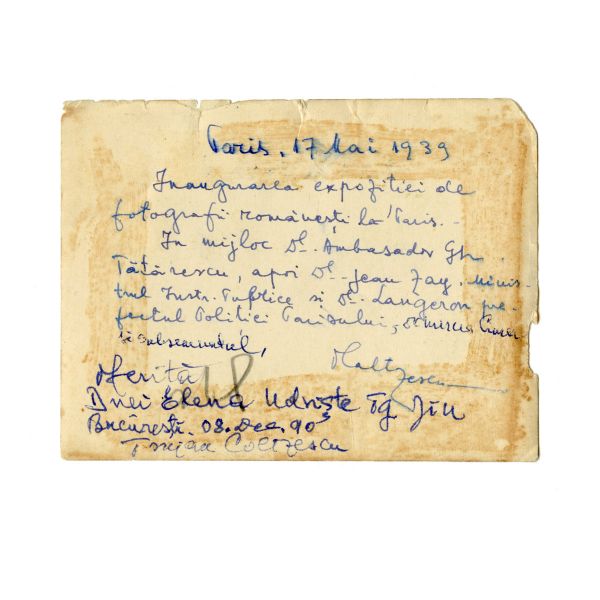 Paris, 17 Mai 1939
Inaugurarea expoziției de
fotografii românești la Paris. -
In mijloc Dl. Ambasador Gh.
Tătărescu, apoi Dl. Jean Zay. Minis-
trul Instr. Publice și Dl. Langeron pre-
fectul Politiei Parisului, Dl mircea
și subsemnatul,
Coltzescu
Oferită
Dnei Elena Udriște Tg Jiu
București. 08. Dec. 90
Traijan Coltzescu